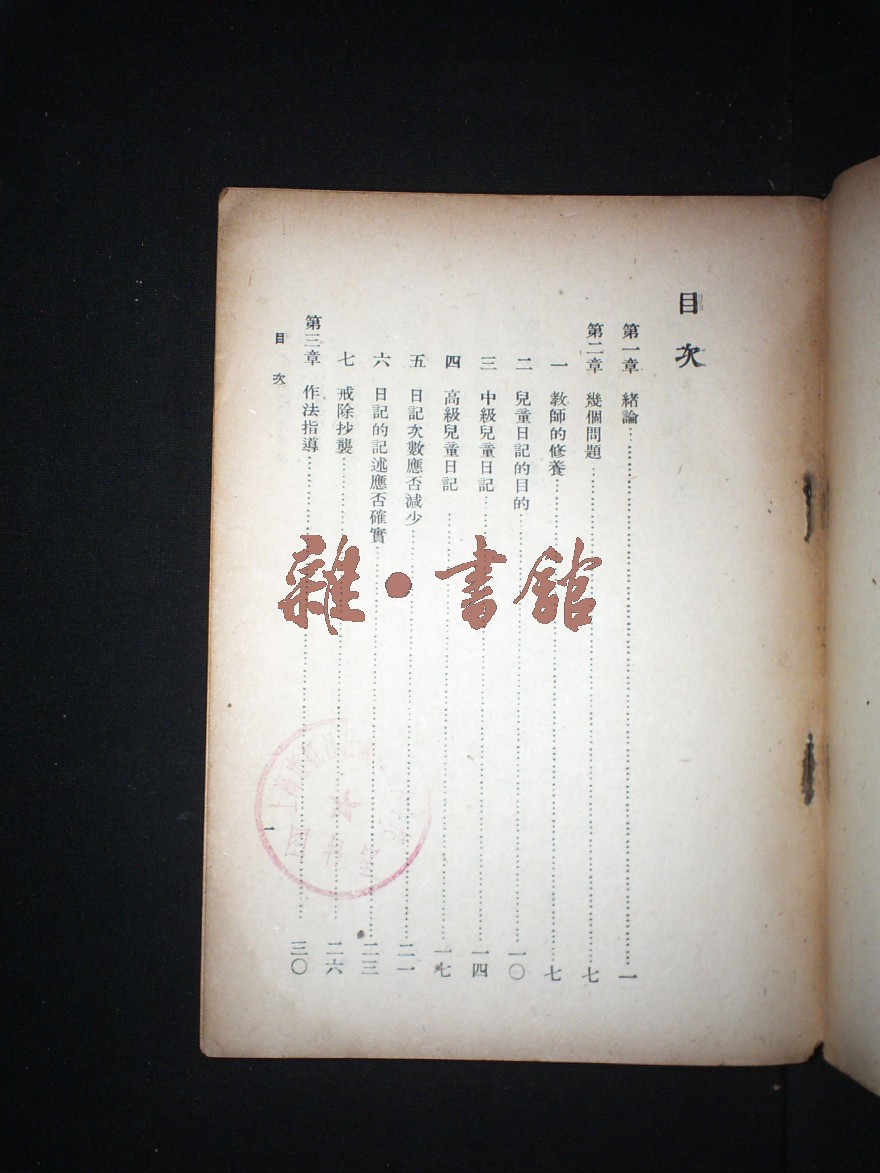 目次
第一章 緒論 一
第二章 幾個問題 七
一 教師的修養 七
二 兒童日記的目的 一〇
三 中級兒童日記 一四
四 高級兒童日記 一七
五 日記次數應否減少 二一
六 日記的記述應否確實 二三
七 戒除抄襲 二六
第三章 作法指導 三〇
目次
一
雜·書館